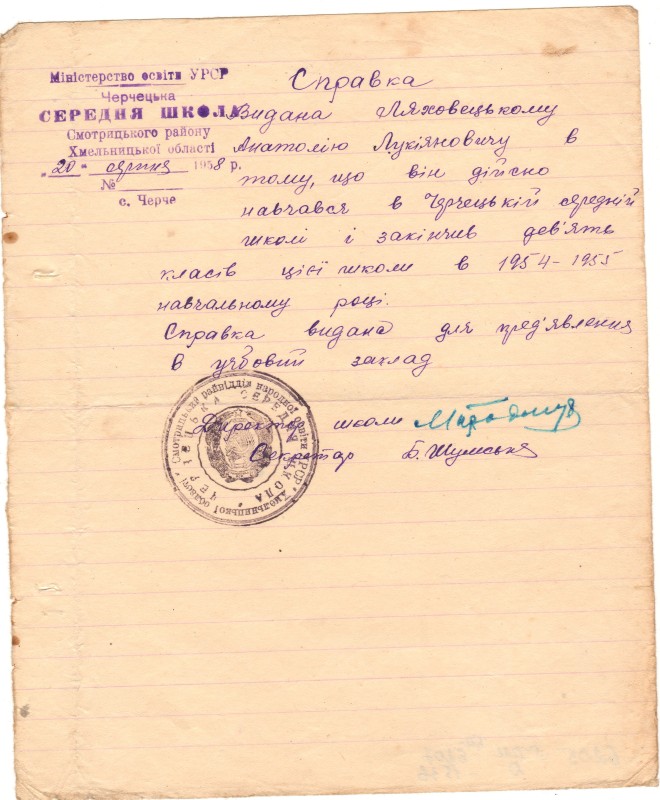 Міністерство освіти УРСР
Черчецька
СЕРЕДНЯ ШКОЛА
Смотрицького району
Хмельницької області
"20" серпня 1958 р.
№
с. Черче
Справка
Видана Ляховецькому
Анатолію Лукіяновичу в
тому, що він дійсно
навчався в Черчецькій середній
школі і закінчив дев'ять
класів цієї школи в 1954-1955
навчальному році.
Справка видана для пред'явлення
в учбовий заклад
Директор школи
Секретар Б. Шумська
Смотрицький райвідділ народної освіти УРСР * Хмельницької області *
ЧЕРЧЕЦЬКА СЕРЕДНЯ ШКОЛА *